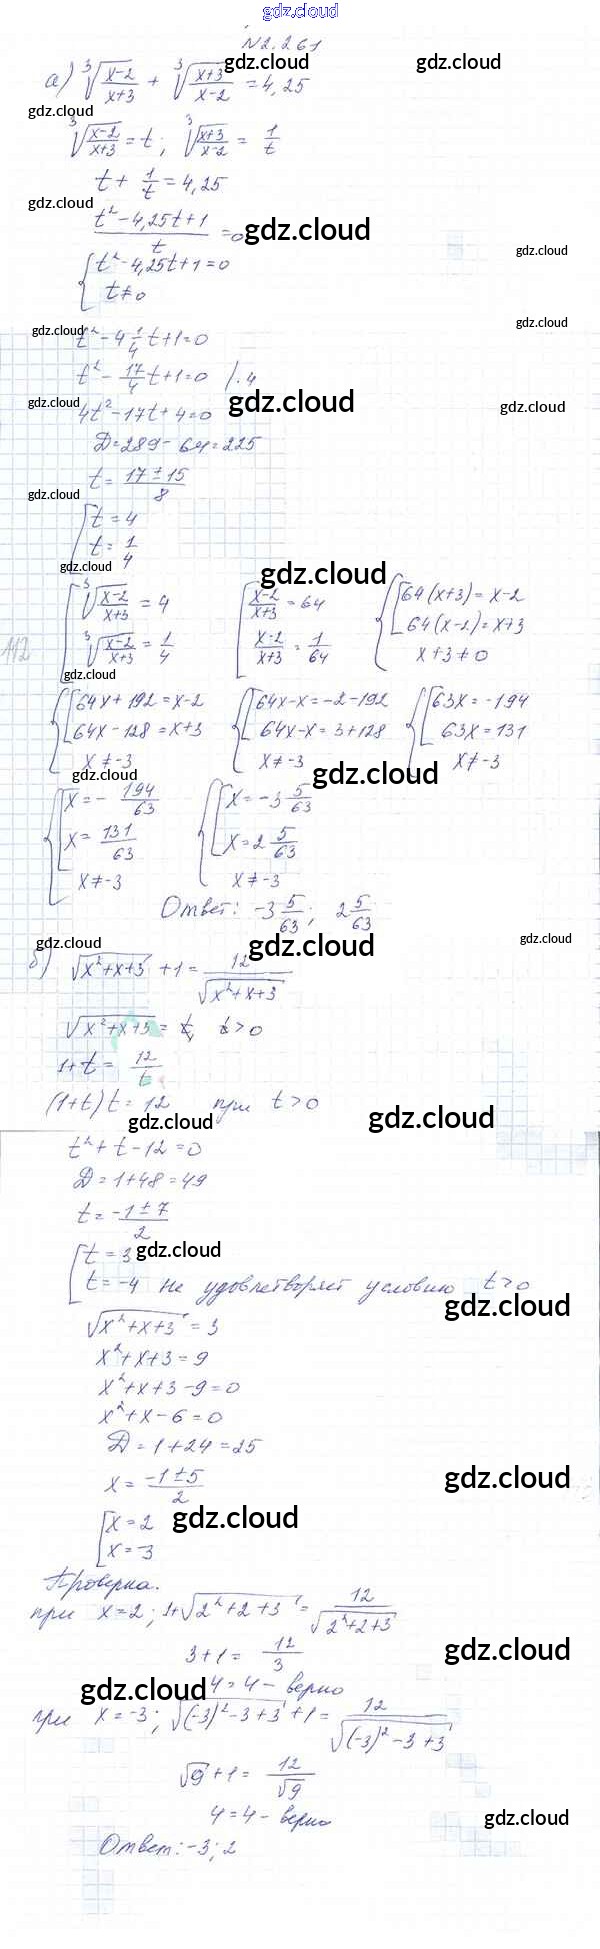 gdz.cloud
N2.261
а) ∛((x-2)/(x+3)) + ∛((x+3)/(x-2)) = 4,25
gdz.cloud gdz.cloud
gdz.cloud
∛((x-2)/(x+3)) = t; ∛((x+3)/(x-2)) = 1/t
t + 1/t = 4,25
gdz.cloud
(t² - 4,25t + 1)/t = 0
gdz.cloud
gdz.cloud
{ t² - 4,25t + 1 = 0
t ≠ 0
gdz.cloud
gdz.cloud
t² - 4 1/4 t + 1 = 0
t² - 17/4 t + 1 = 0 /·4
gdz.cloud gdz.cloud gdz.cloud
4t² - 17t + 4 = 0
D = 289 - 64 = 225
t = (17 ± 15)/8
gdz.cloud
[ t = 4
t = 1/4
gdz.cloud gdz.cloud
[ ∛((x-2)/(x+3)) = 4 [ (x-2)/(x+3) = 64 { [ 64(x+3) = x-2
∛((x-2)/(x+3)) = 1/4 (x-2)/(x+3) = 1/64 64(x-2) = x+3
112 x+3 ≠ 0
gdz.cloud
{ [ 64x + 192 = x-2 { [ 64x-x = -2-192 { [ 63x = -194
64x - 128 = x+3 64x-x = 3+128 63x = 131
x ≠ -3 x ≠ -3 x ≠ -3
gdz.cloud gdz.cloud
{ [ x = - 194/63 { [ x = -3 5/63
x = 131/63 x = 2 5/63
x ≠ -3 x ≠ -3
Ответ: -3 5/63; 2 5/63
gdz.cloud gdz.cloud gdz.cloud
б) √(x²+x+3) + 1 = 12/√(x²+x+3)
√(x²+x+3) = t, t > 0
1+t = 12/t
(1+t)t = 12 при t > 0
gdz.cloud gdz.cloud
t² + t - 12 = 0
D = 1+48 = 49
t = (-1 ± 7)/2
[ t = 3
gdz.cloud
t = -4 не удовлетворяет условию t > 0
gdz.cloud
√(x²+x+3) = 3
x²+x+3 = 9
x²+x+3-9 = 0
x²+x-6 = 0
D = 1+24 = 25
x = (-1 ± 5)/2
gdz.cloud
[ x = 2
gdz.cloud
x = -3
Проверка.
при x = 2; 1+√(2²+2+3) = 12/√(2²+2+3)
3+1 = 12/3
gdz.cloud
4 = 4 - верно
gdz.cloud
при x = -3; √((-3)²-3+3) + 1 = 12/√((-3)²-3+3)
√9 + 1 = 12/√9
4 = 4 - верно
gdz.cloud
Ответ: -3; 2